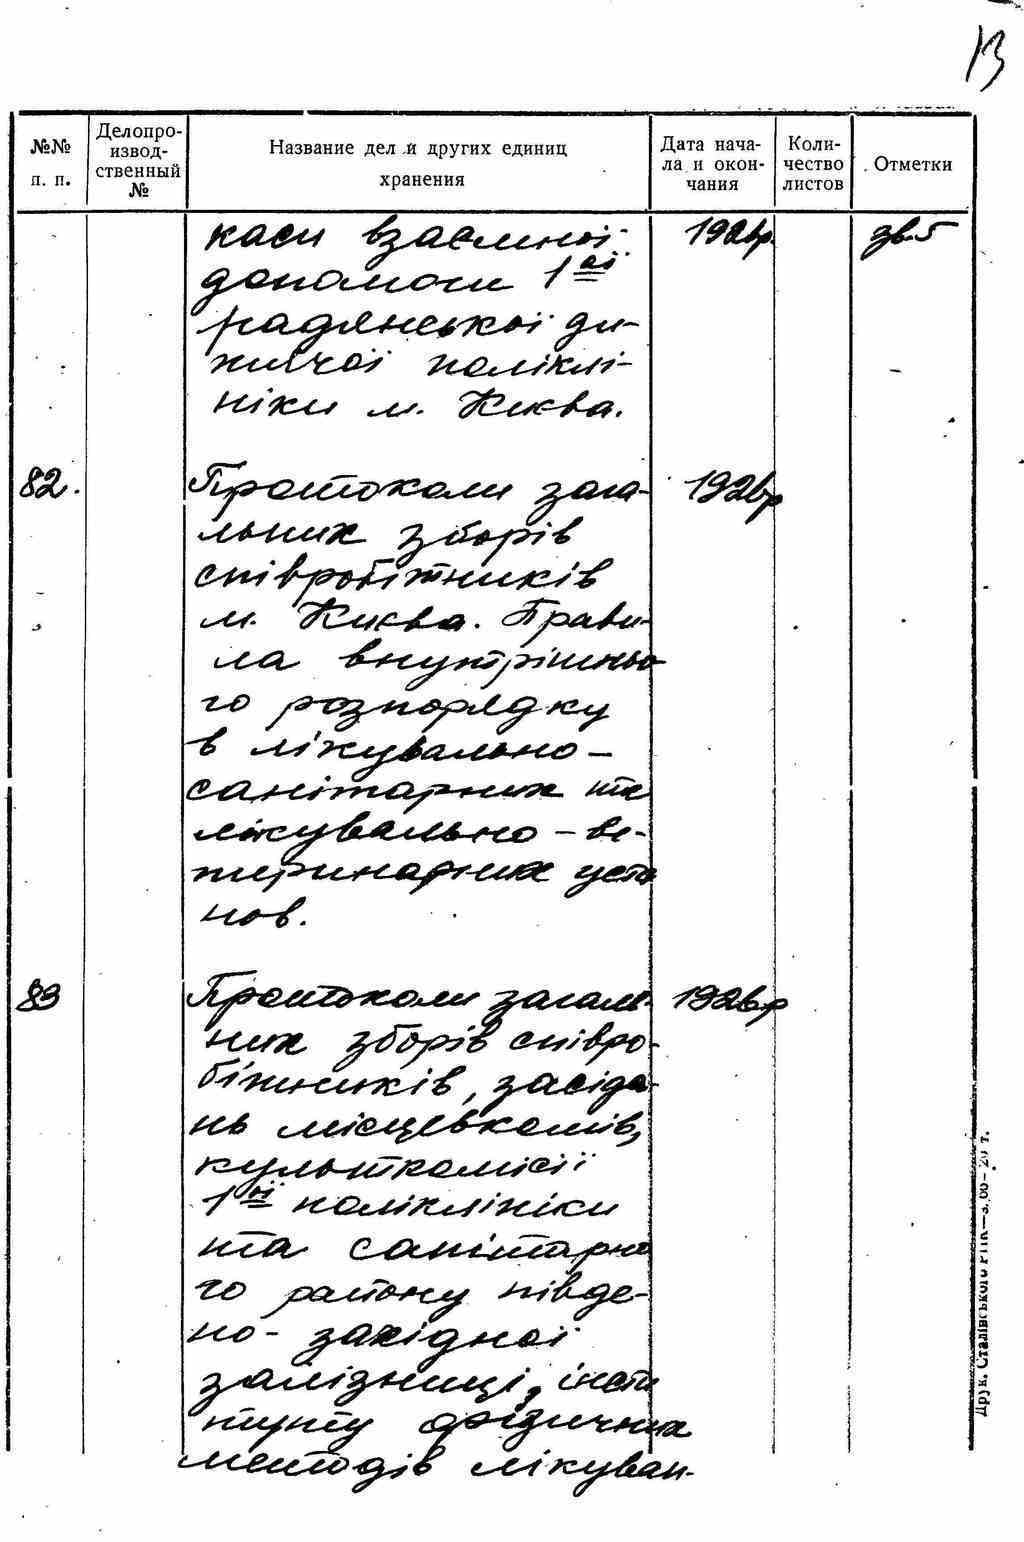 13
№№ п. п.
Делопроизвод-
ственный
№
Название дел и других единиц
хранения
Дата нача-
ла и окон-
чания
Коли-
чество
листов
Отметки
каси взаємної 1926р. зв. 5
допомоги 1ої
радянської ди-
тячої поліклі-
ніки м. Києва.
82. Протоколи зага- 1926р
льних зборів
співробітників
м. Києва. Прави-
ла внутрішньо
го розпорядку
в лікувально-
санітарних та
лікувально-ве-
теринарних уста
нов.
83 Протоколи загаль- 1926р
них зборів співро-
бітників, засіда-
нь місцевкомів,
культкомісії
1ої поліклініки
та санітарно
го району півде-
но-західної
залізниці, інсти
туту фізичних
методів лікуван-
Друк. Сталінського